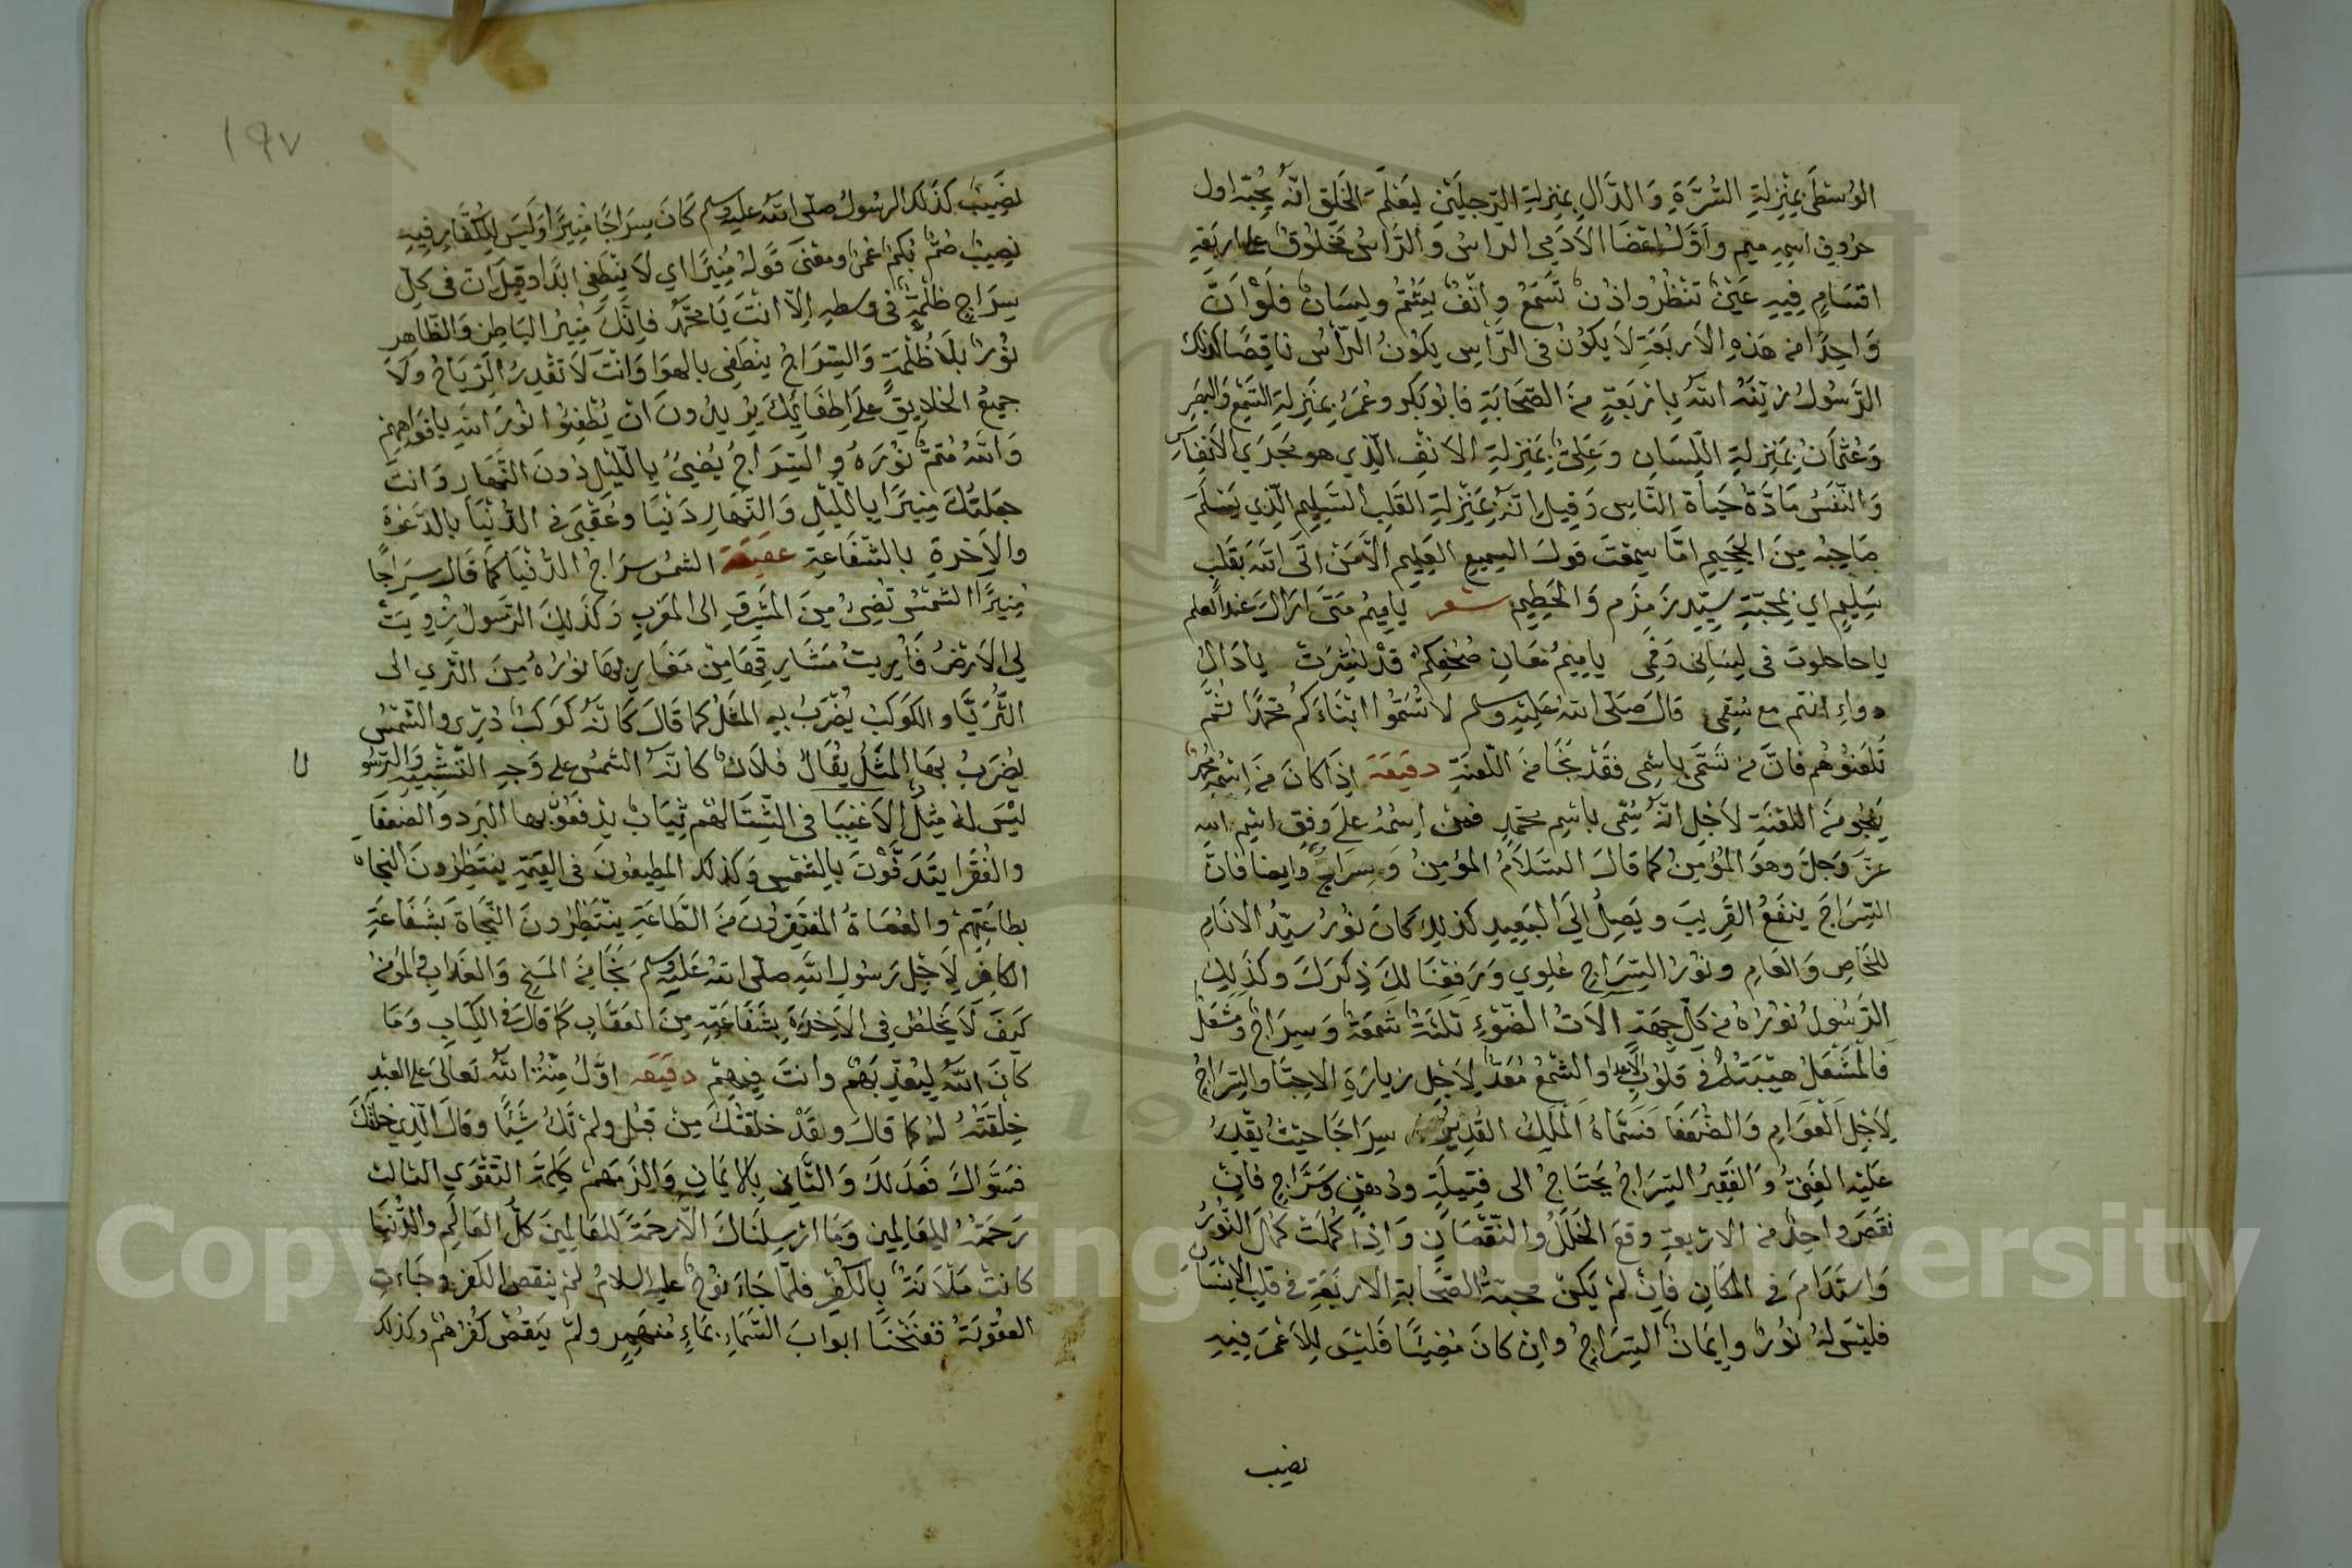 الوُسْطَى بِمَنْزِلَةِ السُّرَّةِ وَالدَّالِ بِمَنْزِلَةِ الرِّجْلَيْنِ لِيَعْلَمَ الخَلْقُ انّه يُحِبّه اول
حروف اسمه ميم واَوَّلُ اعْضَا الآدَمِي الرّاسُ وَالرَّاسُ مَخْلُوقٌ على اربَعَةِ
اقسَامٍ فِيهِ عَيْنٌ تَنْظُرُ واذنٌ تَسْمَعُ وانْفٌ يَشُمُّ ولِسَانٌ فَلَوْ انّ
وَاحِدًا من هَذِهِ الاَربَعَةِ لَا يَكُوْنُ فى الرَّأسِ يكُوْنُ الرّأسُ نَاقِصًا كذلك
الرَّسُولُ زيَّنَهُ الله بِاَرْبَعَةٍ منَ الصَّحَابَةِ فابُو بَكرٍ وعُمَرُ بِمَنْزِلَةِ السَّمْعِ وَالبَصَرِ
وَعُثمَانُ بِمَنْزِلَةِ اللِّسَانِ وَعَلِيٌّ بِمَنْزِلَةِ الاَنْفِ الّذِي هو مَجْرَي الاَنْفَاسِ
وَالنَّفَسُ مَادَّةُ حَيَاةِ النَّاسِ وَقِيلَ انّه بِمَنْزِلَةِ القَلبِ السَّلِيمِ الّذِي يَسْلَمُ
صَاحِبُه مِنَ الجَحِيمِ امَّا سَمِعْتَ قولَ السمِيعِ العَلِيمِ الَّا مَنْ اتَى اللهَ بِقَلبٍ
سَلِيمٍ اي بمَحَبّةِ سَيِّدِ زَمْزَمَ وَالحَطِيمِ شعر يا مِيمُ مَتَى ارَاكَ عندَ العلم
يا حا حلوت فى لِسَانِى وَفَمِى يا مِيمُ مَعَانِ صُحْفِكم قدْ نُشِرَتْ يا دَال
دواءِ انتم مع سُقمِى قالَ صَلّى اللهُ عَلَيْهِ وسلم لا تُسَمُّوا ابْنَاءَكُم مُحَمَّدًا ثمَّ
تَلعَنُوهُم فَانَّ من تَسَمَّى بِاسْمِى فقَدْ نَجَا منَ اللّعنَةِ دقيقة اِذَا كانَ منِ اسْمُهُ مُحمدٌ
يَنْجُو منَ اللعْنَةِ لاَجْلِ انّهُ سُمِّى باسْمِ محمّدٍ فمَن اسْمُهُ عَلَى وِفقِ اسْمِ الله
عَزَّ وَجلَّ وهوَ المُؤْمِنُ كما قالَ السَّلاَمُ المُؤمِنُ وَسِرَاجٌ وايضا فانّ
السِّرَاجَ ينْفَعُ القَرِيبَ ويَصِلُ اِلَى البَعِيدِ كذلِكَ كانَ نُورُ سيّدُ الانَامِ
للخَاصِ وَالعَامِ ونُورُ السِّرَاجِ عُلوِي وَرَفَعْنَا لكَ ذِكرَكَ وكذَلِكَ
الرَّسُوْلُ نُوْرُهُ من كلّ جِهَةٍ آلَاتُ الضَّوْءِ ثَلَثَةٌ شَمْعَةٌ وَسِرَاجٌ وَمَشْعَلٌ
فَالمَشْعَلُ هَيْبَتُهُ فى قلوْبِ الاعدا والشَّمْعُ مُعَدٌّ لِاَجْلِ زِيارَةِ الاحِبَّا والسِّرَاجُ
لِاَجْلِ العَوَامِ وَالضُّعَفَا فَسَمَّاهُ المَلِكُ القَدِيرُ سِرَاجًا حيْثُ يقْدِرُ
عَلَيْهِ الغَنِىُّ وَالفَقِيرُ السِّرَاجُ يَحْتَاجُ الى فَتِيلَةٍ ودُهْنٍ وسَرَّاجٍ فانْ
نقَصَ واحِدٌ من الاربَعَةِ وقعَ الخَلَلُ والنُّقْصَانِ وَاِذَا كمُلَتْ كَمُلَ النُّورُ
وَاسْتَدَامَ فى المَكَانِ فَانْ لَمْ يَكُنْ محبّةُ الصَّحَابَةِ الاَربَعَةِ فى قلبِ الاِنْسَانِ
فليْسَ لهُ نُوْرٌ وايمَانٌ السِّرَاجُ وان كانَ مُضِيئًا فَلَيْسَ لِلاَعْمَى فِيهِ
نصيب
١٩٧
نصِيبٌ كَذلكَ الرسُولُ صلّى الله عليه وسلم كَانَ سِرَاجًا مُنِيرًا وَليْسَ لِلْكُفَّارِ فِيهِ
نصِيبٌ صُمٌّ بُكمٌ عُمْيٌ ومعْنى قَولهُ مُنِيرًا اي لَا يَنْطَفِى ابَدًا وقِيلَ انّ فى كلّ
سِرَاجٍ ظُلْمَةٌ فى وَسطِهِ اِلّا انْتَ يَا مُحَمّدُ فَانّكَ مُنِيرُ البَاطِنِ وَالظّاهِرِ
نُوْرٌ بِلَا ظُلْمَةٍ وَالسِّرَاجُ ينْطَفِى بِالهوَا وَانْتَ لَا تَقْدِرُ الرِّيَاحُ وَلَا
جمِيعُ الخلايقِ عَلى اِطفَائِكَ يرِيدُونَ انْ يُطْفِئُوا نُوْرَ اللهِ بِافْوَاهِهِمْ
وَاللهُ مُتِمُّ نُوْرَهُ والسِّرَاجُ يُضِيءُ باللّيْلِ دُونَ النَّهَارِ وَانتَ
جعَلتُكَ مُنِيرًا بِاللّيْلِ وَالنَّهَارِ دنْيَا وعُقْبَى فى الدُّنْيَا بالدَّعْوَةِ
والاَخِرةِ بالشّفَاعَةِ عقيقة الشمسُ سرَاجُ الدُّنْيَا كمَا قَالَ سِرَاجًا
مُنِيرًا الشمْسُ تُضِىءُ مِنَ المَشْرِقِ الى المَغربِ وَكذَلِكَ الرَّسُولُ زُوِيَتْ
لِيَ الاَرْضُ فَأُرِيتُ مَشَارِقَهَا مِنْ مَغَارِبِهَا نُوْرُهُ مِنَ الثَّرى الى
الثُّرَيَّا والكوْكَبُ يُضْرَبُ بهِ المثَلُ كما قَالَ كَانّهُ كَوكَبٌ دُرِّي والشّمْسُ
يضْرَبُ بهَا المَثَلُ يُقَالُ فلَانٌ كانّهُ الشمسُ على وَجهِ التّشْبِيهِ وَالرّسُو
ل
ليْسَ لهُ مِثْلٌ الاَغنِيَا فى الشِّتَا لهُمْ ثِيَابٌ يَدفعُوْنَ بها البَردَ وَالضعَفَا
والفُقَرَا يتَدَفَّوْنَ بالشّمْسِ وَكذلكَ المُطِيعُونَ فى القِيٰمَةِ ينتَظِرُونَ النجَاةَ
بطاعَتِهِمْ والعُصَاةُ المفتَقِرُونَ منَ الطَّاعَةِ ينْتَظِرُونَ النَّجَاةَ بشَفَاعَةِ
الكافِرُ لِاَجْلِ رَسُولِ اللهِ صلّى الله عَليْهِ وسلم نَجَا منَ المَسْخِ وَالعَذَابِ والمؤمنُ
كيْفَ لَا يَخلُصُ فِى الاَخِرَةِ بِشَفَاعَتِهِ مِنَ العقَابِ كمَا قالَ فى الكِتَابِ وَمَا
كانَ اللّهُ لِيُعَذِّبَهُمْ وانتَ فِيهِمْ دقيقه اوّلُ مِنّةُ اللّهِ تعَالَى عَلى العَبْدِ
خِلْقَتُهُ لهُ كما قالَ ولقَدْ خلَقتُكَ مِنْ قَبْلُ ولَمْ تَكُ شَيْئًا وقَالَ الّذِي خلَقَكَ
فسَوَّاكَ فَعَدَلَكَ وَالثَّانِى بِالاِيمَانِ وَاَلزَمَهُمْ كَلِمَةَ التَّقْوَى الثالث
رَحمَتُهُ للعَالمِين وَمَا ارْسَلنَاكَ الَّا رَحمَةً لِلعَالمِينَ كلُّ العَالَمِ والدُّنْيَا
كانتْ مَلآنَةٌ بِالكُفْرِ فلمّا جَاءَ نُوْحٌ عليه السلامُ لمْ ينقص الكفر وجَاءتِ
العقُوبَةُ ففتَحْنَا ابوَابَ السَّمَاءِ بمَاءٍ مُنهَمِرٍ ولمْ يَنقُصْ كُفرُهُمْ وكذلك